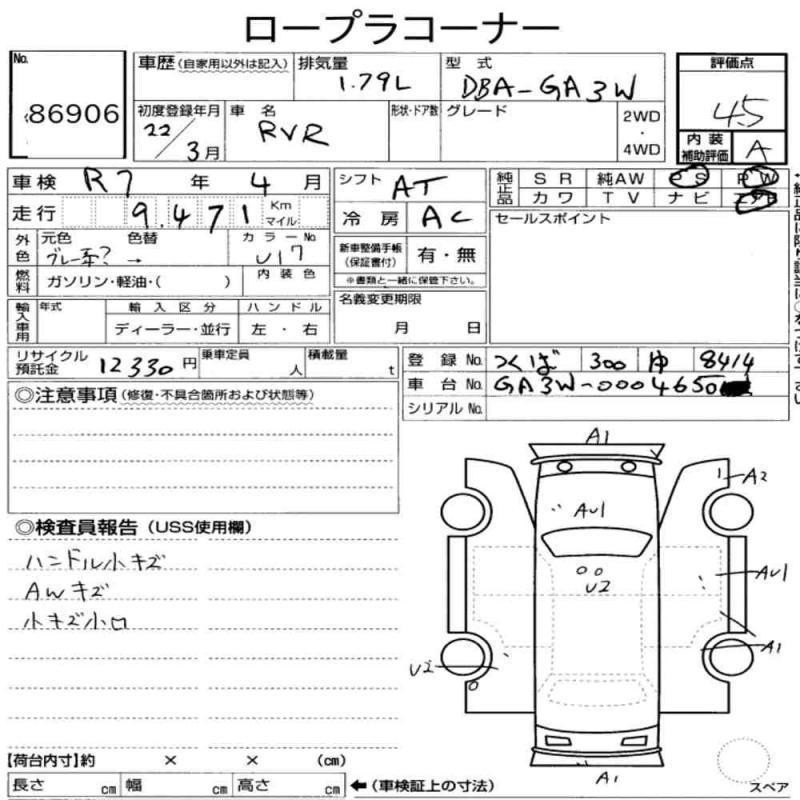 ロープラコーナー
No.
86906
車歴 (自家用以外は記入)
排気量
1.79L
型式
DBA-GA3W
評価点
4.5
初度登録年月
22/3月
車名
RVR
形状・ドア数
グレード
2WD
・
4WD
内装
補助評価
A
車検 R7年 4月
走行 9,471 Km
マイル
外色
元色
グレー系?
色替
→
カラーNo.
U17
燃料
ガソリン・軽油・( )
内装色
輸入車用
年式
輸入区分
ディーラー・並行
ハンドル
左・右
シフト
AT
冷房 AC
新車整備手帳
(保証書付)
有・無
※書類と一緒に保管下さい。
名義変更期限
月 日
純正品
SR 純AW PS PW
カワ TV ナビ
セールスポイント
リサイクル
預託金
12330円
乗車定員
人
積載量
t
登録No. つくば 300 ゆ 8414
車台No. GA3W-0004650
シリアルNo.
◎注意事項 (修復・不具合箇所および状態等)
◎検査員報告 (USS使用欄)
ハンドル小キズ
AWキズ
小キズ小凹
A1
A2
AU1
U2
AU1
A1
U2
A1
【荷台内寸】約 × × (cm)
長さ cm 幅 cm 高さ cm
←(車検証上の寸法)
スペア